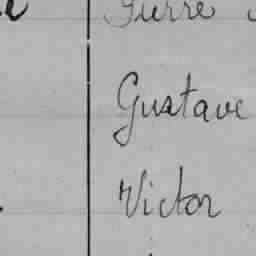 Pierre
Gustave
Victor